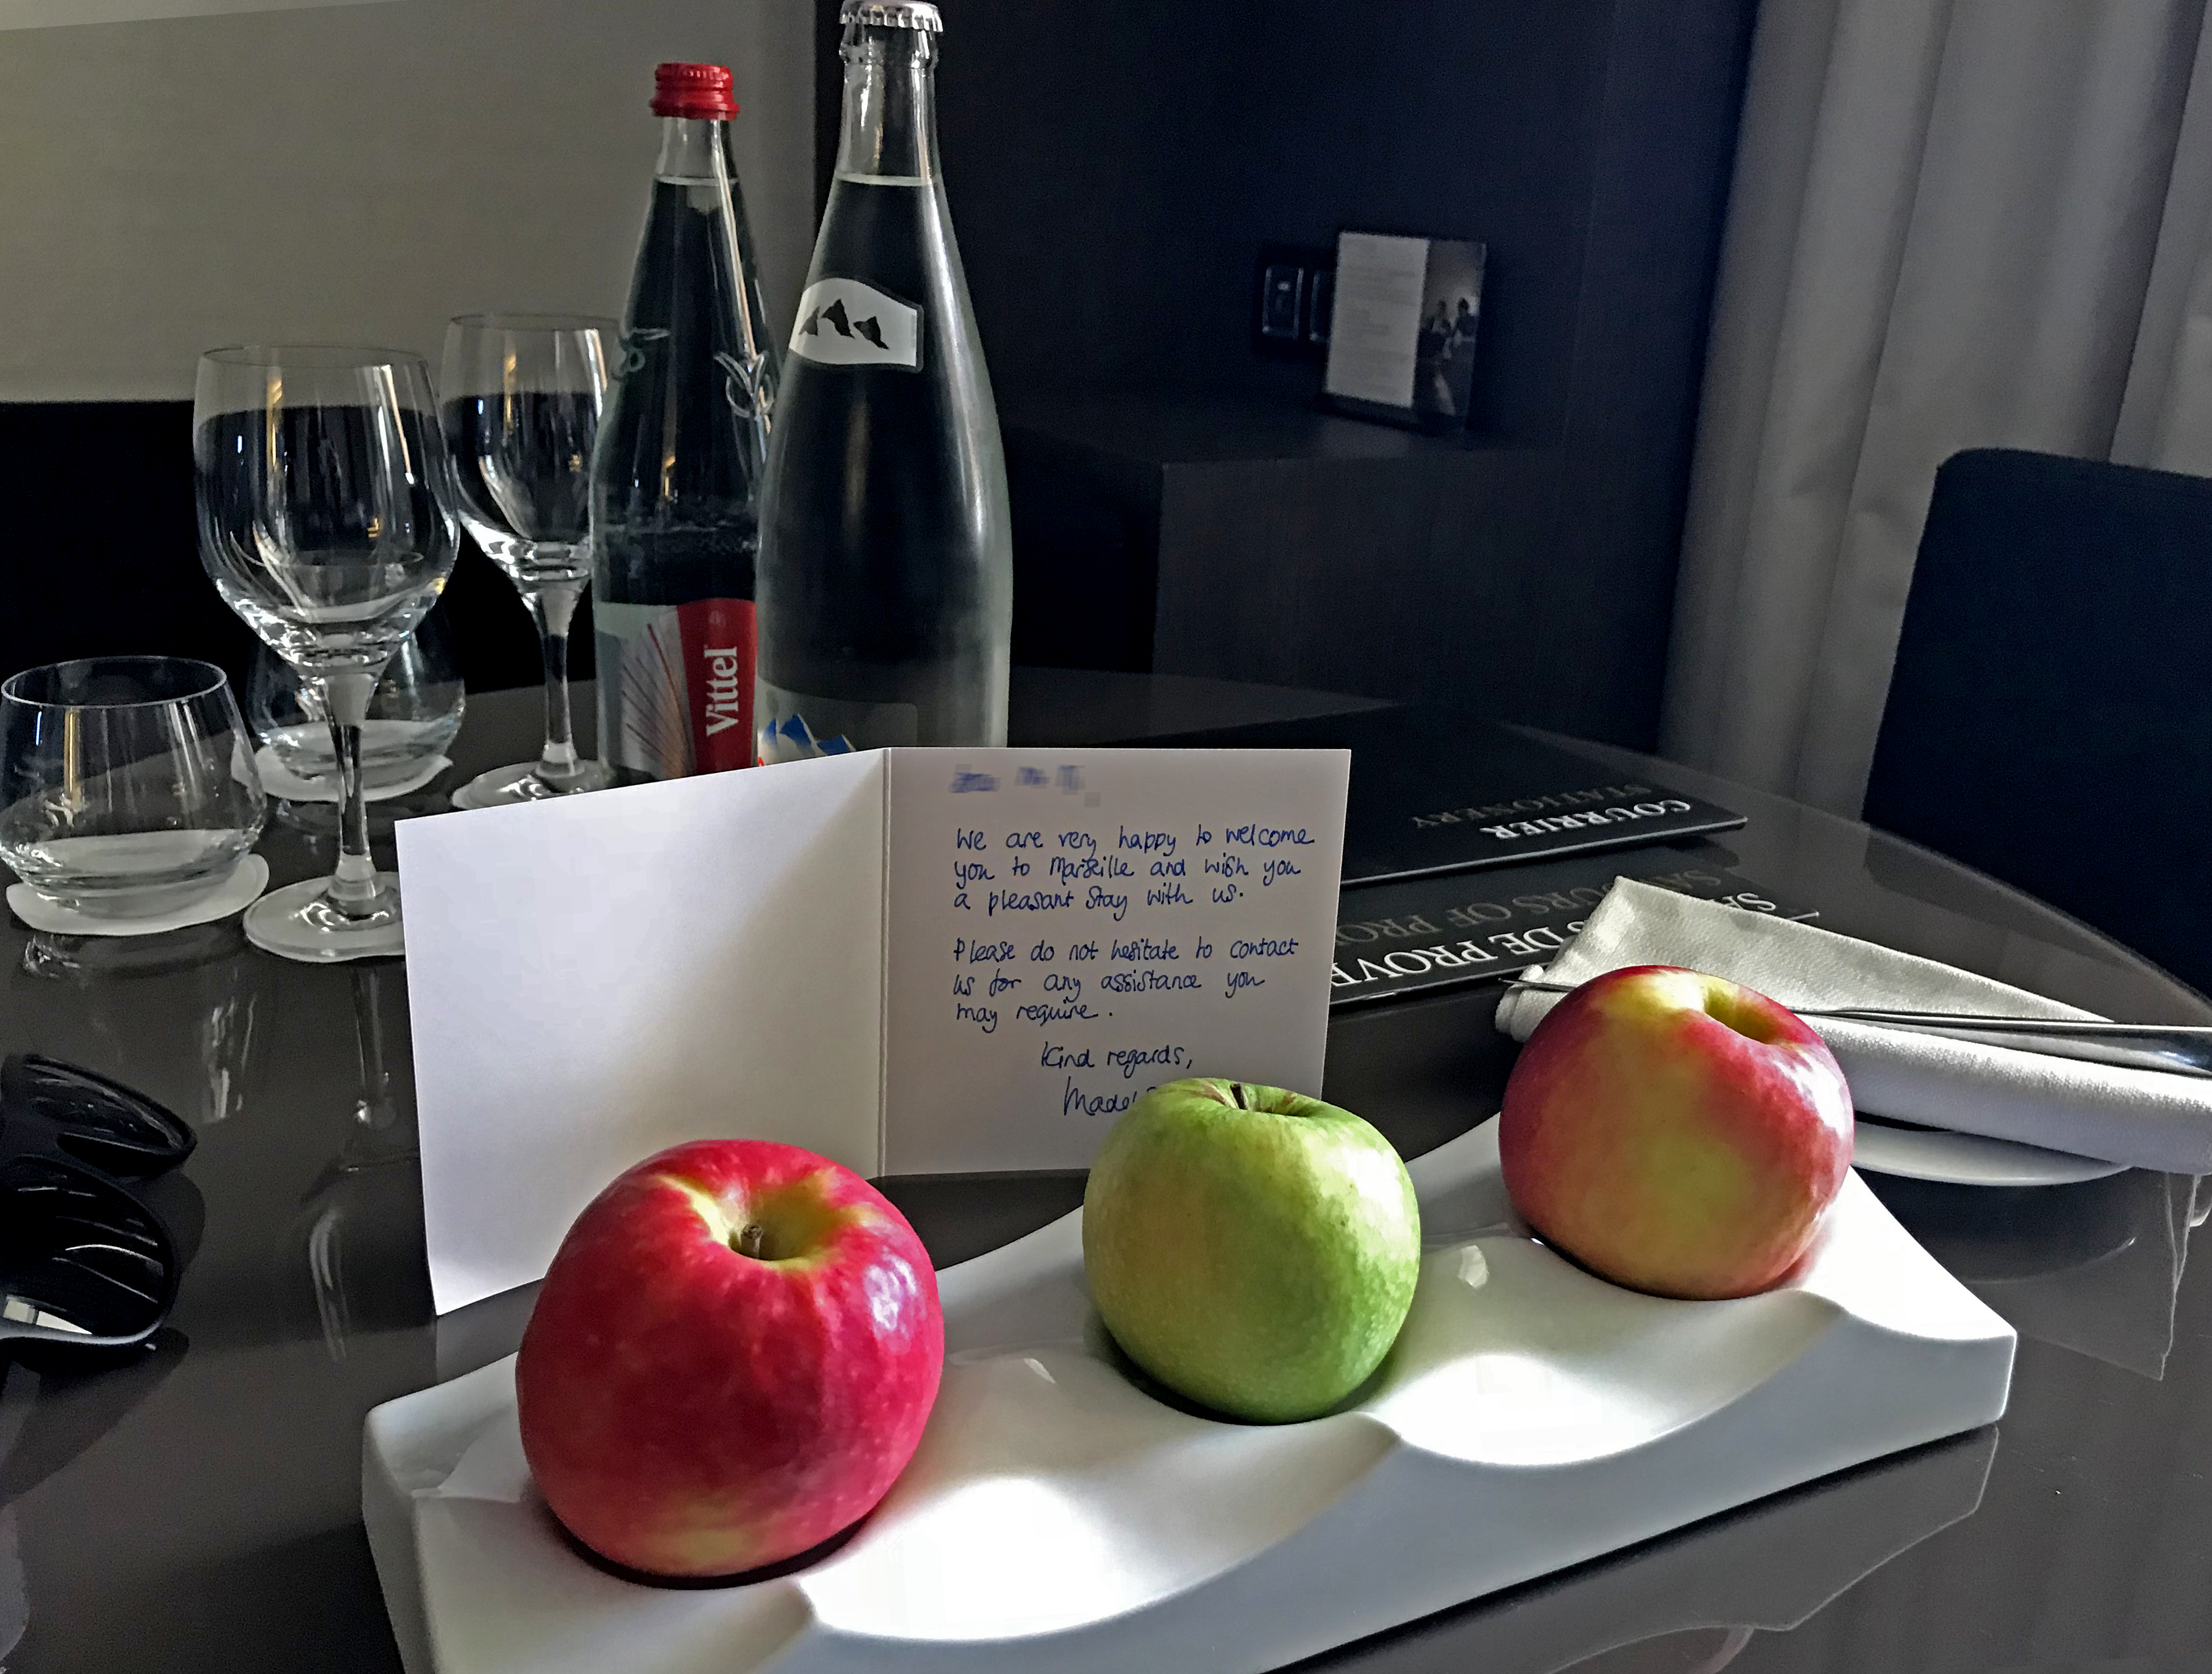 Vittel
We are very happy to welcome
you to Marseille and wish you
a pleasant stay with us.
Please do not hesitate to contact
us for any assistance you
may require.
Kind regards,
COURRIER
STATIONERY
DE
OF